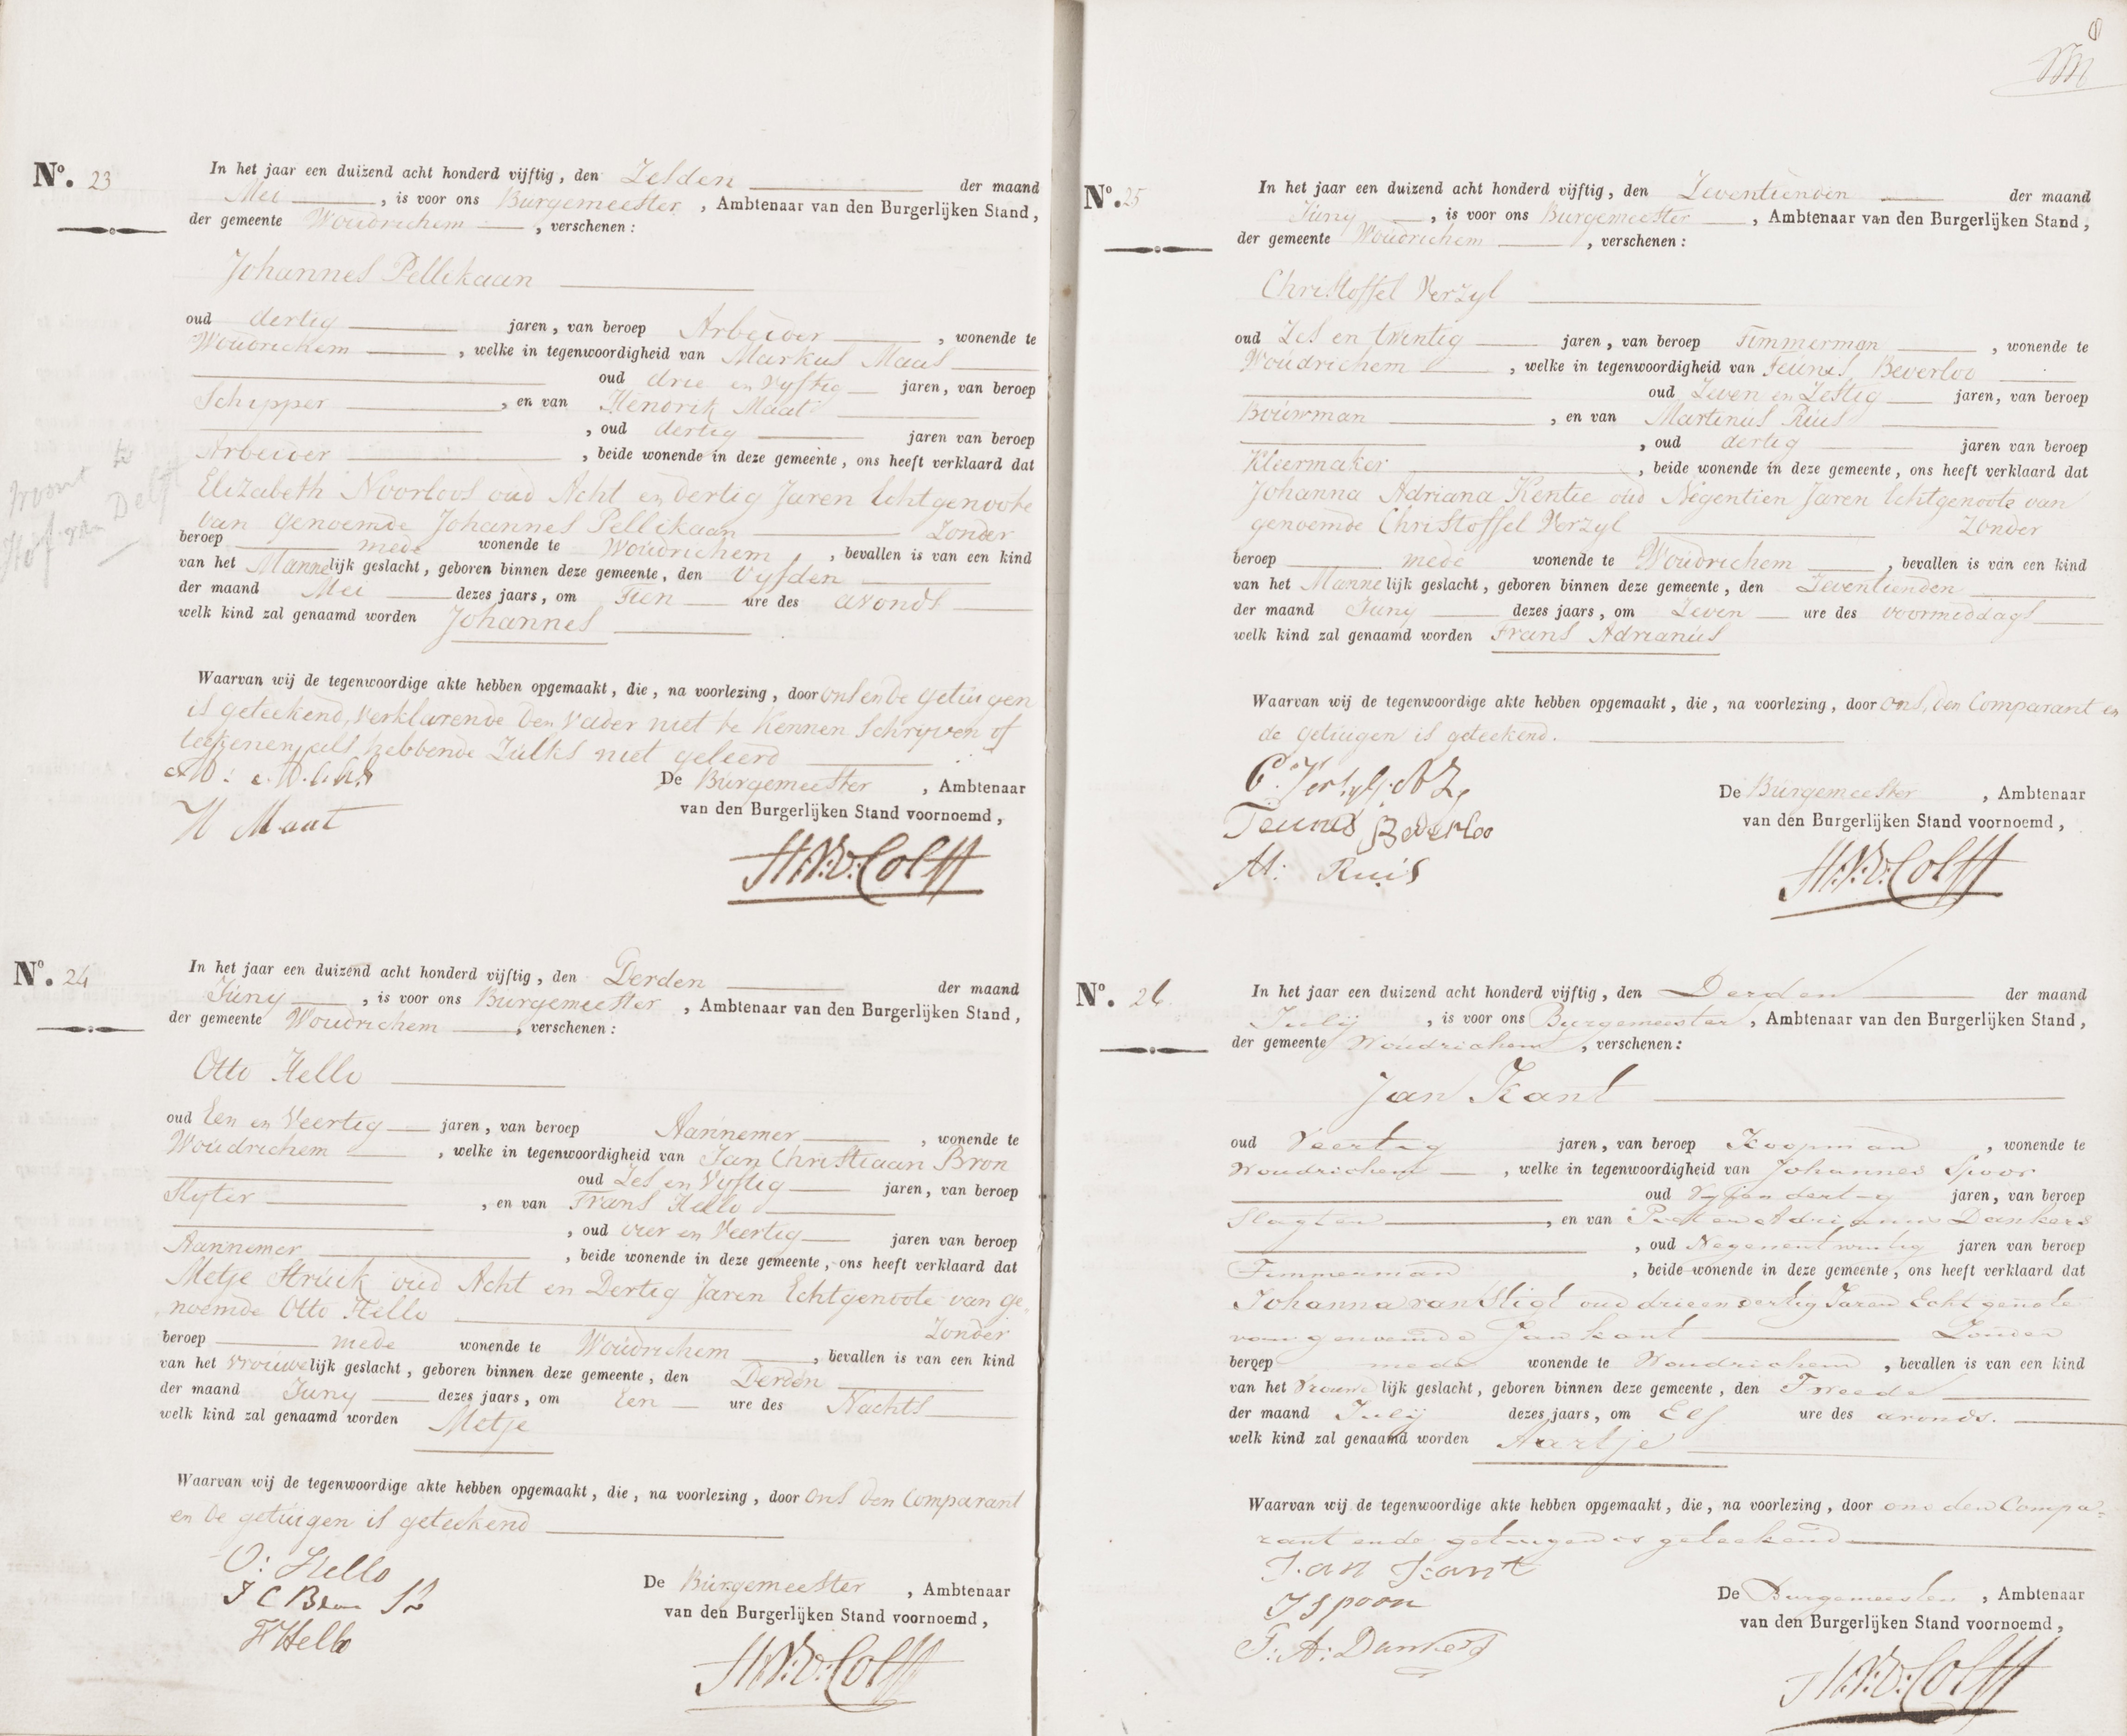 No. 23
In het jaar een duizend acht honderd vijftig, den Zesden der maand
Mei, is voor ons Burgemeester, Ambtenaar van den Burgerlijken Stand,
der gemeente Woudrichem, verschenen:
Johannes Pellikaan
oud dertig jaren, van beroep Arbeider, wonende te
Woudrichem, welke in tegenwoordigheid van Markus Maas
oud drie en Vyftig jaren, van beroep
Schipper, en van Hendrik Maat
, oud dertig jaren van beroep
Arbeider, beide wonende in deze gemeente, ons heeft verklaard dat
Elizabeth Noorloos oud Acht en dertig Jaren Echtgenoote
van genoemde Johannes Pellikaan Zonder
beroep mede wonende te Woudrichem, bevallen is van een kind
van het Mannelijk geslacht, geboren binnen deze gemeente, den Vyfden
der maand Mei dezes jaars, om Tien ure des avonds
welk kind zal genaamd worden Johannes
Waarvan wij de tegenwoordige akte hebben opgemaakt, die, na voorlezing, door ons en de getuigen
is geteekend, verklarende den Vader niet te kennen Schryven of
teekenen, als hebbende Zulks niet geleerd
H Maat
De Burgemeester, Ambtenaar
van den Burgerlijken Stand voornoemd,
No. 24
In het jaar een duizend acht honderd vijftig, den Derden der maand
Juny, is voor ons Burgemeester, Ambtenaar van den Burgerlijken Stand,
der gemeente Woudrichem, verschenen:
Otto Hello
oud Een en Veertig jaren, van beroep Aannemer, wonende te
Woudrichem, welke in tegenwoordigheid van Jan Christiaan Bron
oud Zes en Vyftig jaren, van beroep
Slyter, en van Frans Hello
, oud vier en Veertig jaren van beroep
Aannemer, beide wonende in deze gemeente, ons heeft verklaard dat
Metje Struik oud Acht en Dertig Jaren Echtgenoote van ge
noemde Otto Hello Zonder
beroep mede wonende te Woudrichem, bevallen is van een kind
van het Vrouwelijk geslacht, geboren binnen deze gemeente, den Derden
der maand Juny dezes jaars, om Een ure des Nachts
welk kind zal genaamd worden Metje
Waarvan wij de tegenwoordige akte hebben opgemaakt, die, na voorlezing, door ons den Comparant
en de getuigen is geteekend
O: Hello
J C Bron
F Hello
De Burgemeester, Ambtenaar
van den Burgerlijken Stand voornoemd,
No. 25
In het jaar een duizend acht honderd vijftig, den Zeventienden der maand
Juny, is voor ons Burgemeester, Ambtenaar van den Burgerlijken Stand,
der gemeente Woudrichem, verschenen:
Christoffel Verzyl
oud Zes en twintig jaren, van beroep Timmerman, wonende te
Woudrichem, welke in tegenwoordigheid van Teunis Beverloo
oud Zeven en Zestig jaren, van beroep
Bouwman, en van Martinus Ruis
, oud dertig jaren van beroep
Kleermaker, beide wonende in deze gemeente, ons heeft verklaard dat
Johanna Adriana Kentie oud Negentien Jaren Echtgenoote van
genoemde Christoffel Verzyl Zonder
beroep mede wonende te Woudrichem, bevallen is van een kind
van het Mannelijk geslacht, geboren binnen deze gemeente, den Zeventienden
der maand Juny dezes jaars, om Zeven ure des voormiddags
welk kind zal genaamd worden Frans Adrianus
Waarvan wij de tegenwoordige akte hebben opgemaakt, die, na voorlezing, door ons, den Comparant en
de getuigen is geteekend.
Teunis Beverloo
M: Ruis
De Burgemeester, Ambtenaar
van den Burgerlijken Stand voornoemd,
No. 26
In het jaar een duizend acht honderd vijftig, den Derden der maand
Julij, is voor ons Burgemeester, Ambtenaar van den Burgerlijken Stand,
der gemeente Woudrichem, verschenen:
Jan Kant
oud Veertig jaren, van beroep Koopman, wonende te
Woudrichem, welke in tegenwoordigheid van Johannes Spoor
oud Vyfendertig jaren, van beroep
Slagter, en van Pieter Adrianus Dankers
, oud Negenentwintig jaren van beroep
Timmerman, beide wonende in deze gemeente, ons heeft verklaard dat
Johanna van Stigt oud drieendertig Jaren Echtgenote
van genoemde Jan Kant Zonder
beroep mede wonende te Woudrichem, bevallen is van een kind
van het Vrouwelijk geslacht, geboren binnen deze gemeente, den Tweede
der maand Julij dezes jaars, om Elf ure des avonds.
welk kind zal genaamd worden Aartje
Waarvan wij de tegenwoordige akte hebben opgemaakt, die, na voorlezing, door ons den Compa=
rant ende getuigen is geteekend
Jan Kant
J Spoor
P: A: Dankers
De Burgemeester, Ambtenaar
van den Burgerlijken Stand voornoemd,